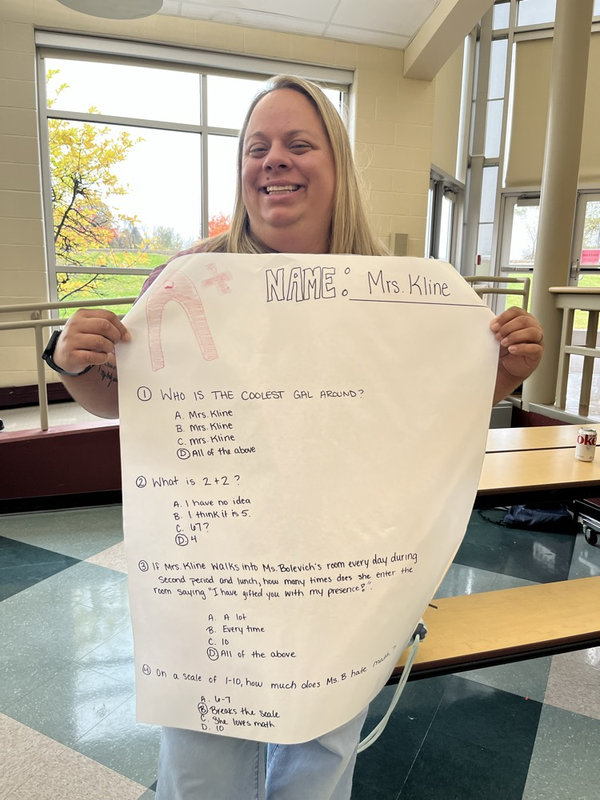 A+
NAME: Mrs. Kline
① WHO IS THE COOLEST GAL AROUND?
A. Mrs. Kline
B. Mrs. Kline
C. Mrs. Kline
Ⓓ All of the above
② What is 2+2?
A. I have no idea
B. I think it is 5.
C. 67?
Ⓓ 4
③ If Mrs. Kline walks into Ms. Bolevich's room every day during
second period and lunch, how many times does she enter the
room saying "I have gifted you with my presence"?
A. A lot
B. Every time
C. 10
Ⓓ All of the above
④ On a scale of 1-10, how much does Ms. B hate math?
A. 6-7
Ⓑ Breaks the scale
C. She loves math
D. 10